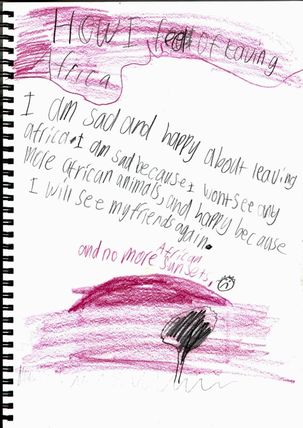 How I feel of leaving
Africa
I am sad and happy about leaving
africa. I am sad because I wont see any
more african animals, and happy because
I will see my friends again.
African
and no more sunsets,